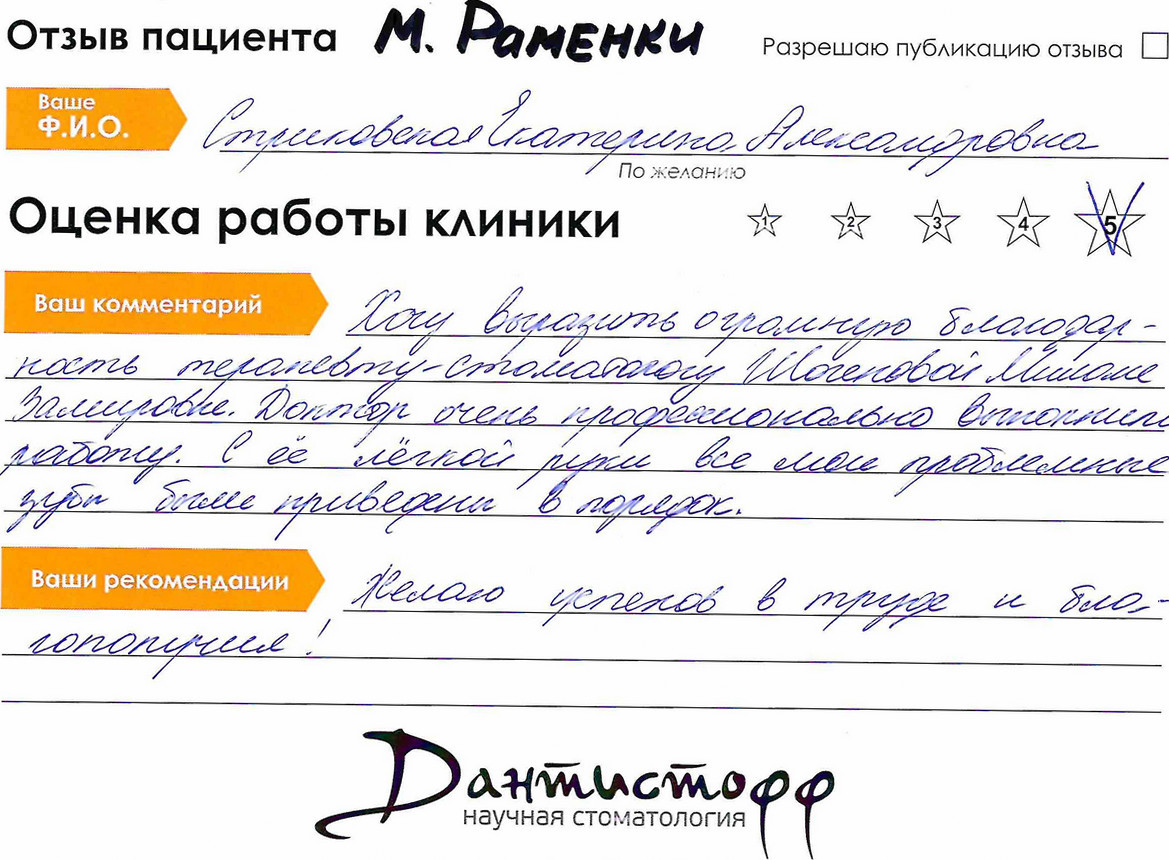 Отзыв пациента М. Раменки Разрешаю публикацию отзыва
Ваше
Ф.И.О.
Стриковская Екатерина Александровна
По желанию
Оценка работы клиники 1 2 3 4 5
Ваш комментарий Хочу выразить огромную благодар-
ность терапевту-стоматологу Шогеновой Милане
Замировне. Доктор очень профессионально выполнил
работу. С её лёгкой руки все мои проблемные
зубы были приведены в порядок.
Ваши рекомендации Желаю успехов в труде и бла-
гополучия!
Дантистофф
научная стоматология